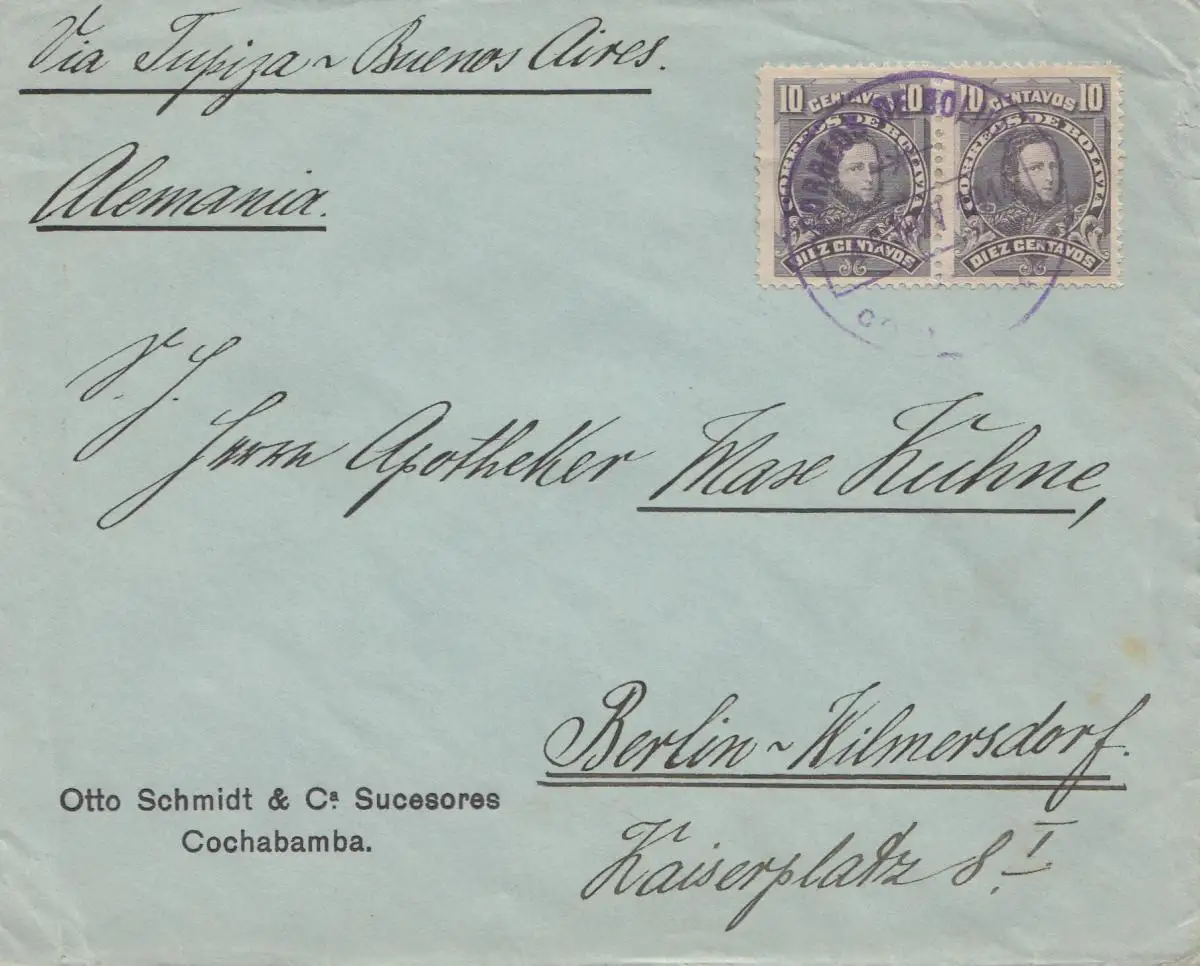 Via Tupiza ~ Buenos Aires.
10 CENTAVOS 10
CORREOS DE BOLIVIA
DIEZ CENTAVOS
10 CENTAVOS 10
CORREOS DE BOLIVIA
DIEZ CENTAVOS
CORREOS DE BOLI
Alemania.
S. J.
Herrn Apotheker Max Kuhne,
Berlin ~ Wilmersdorf.
Kaiserplatz 8. I
Otto Schmidt & Cª Sucesores
Cochabamba.